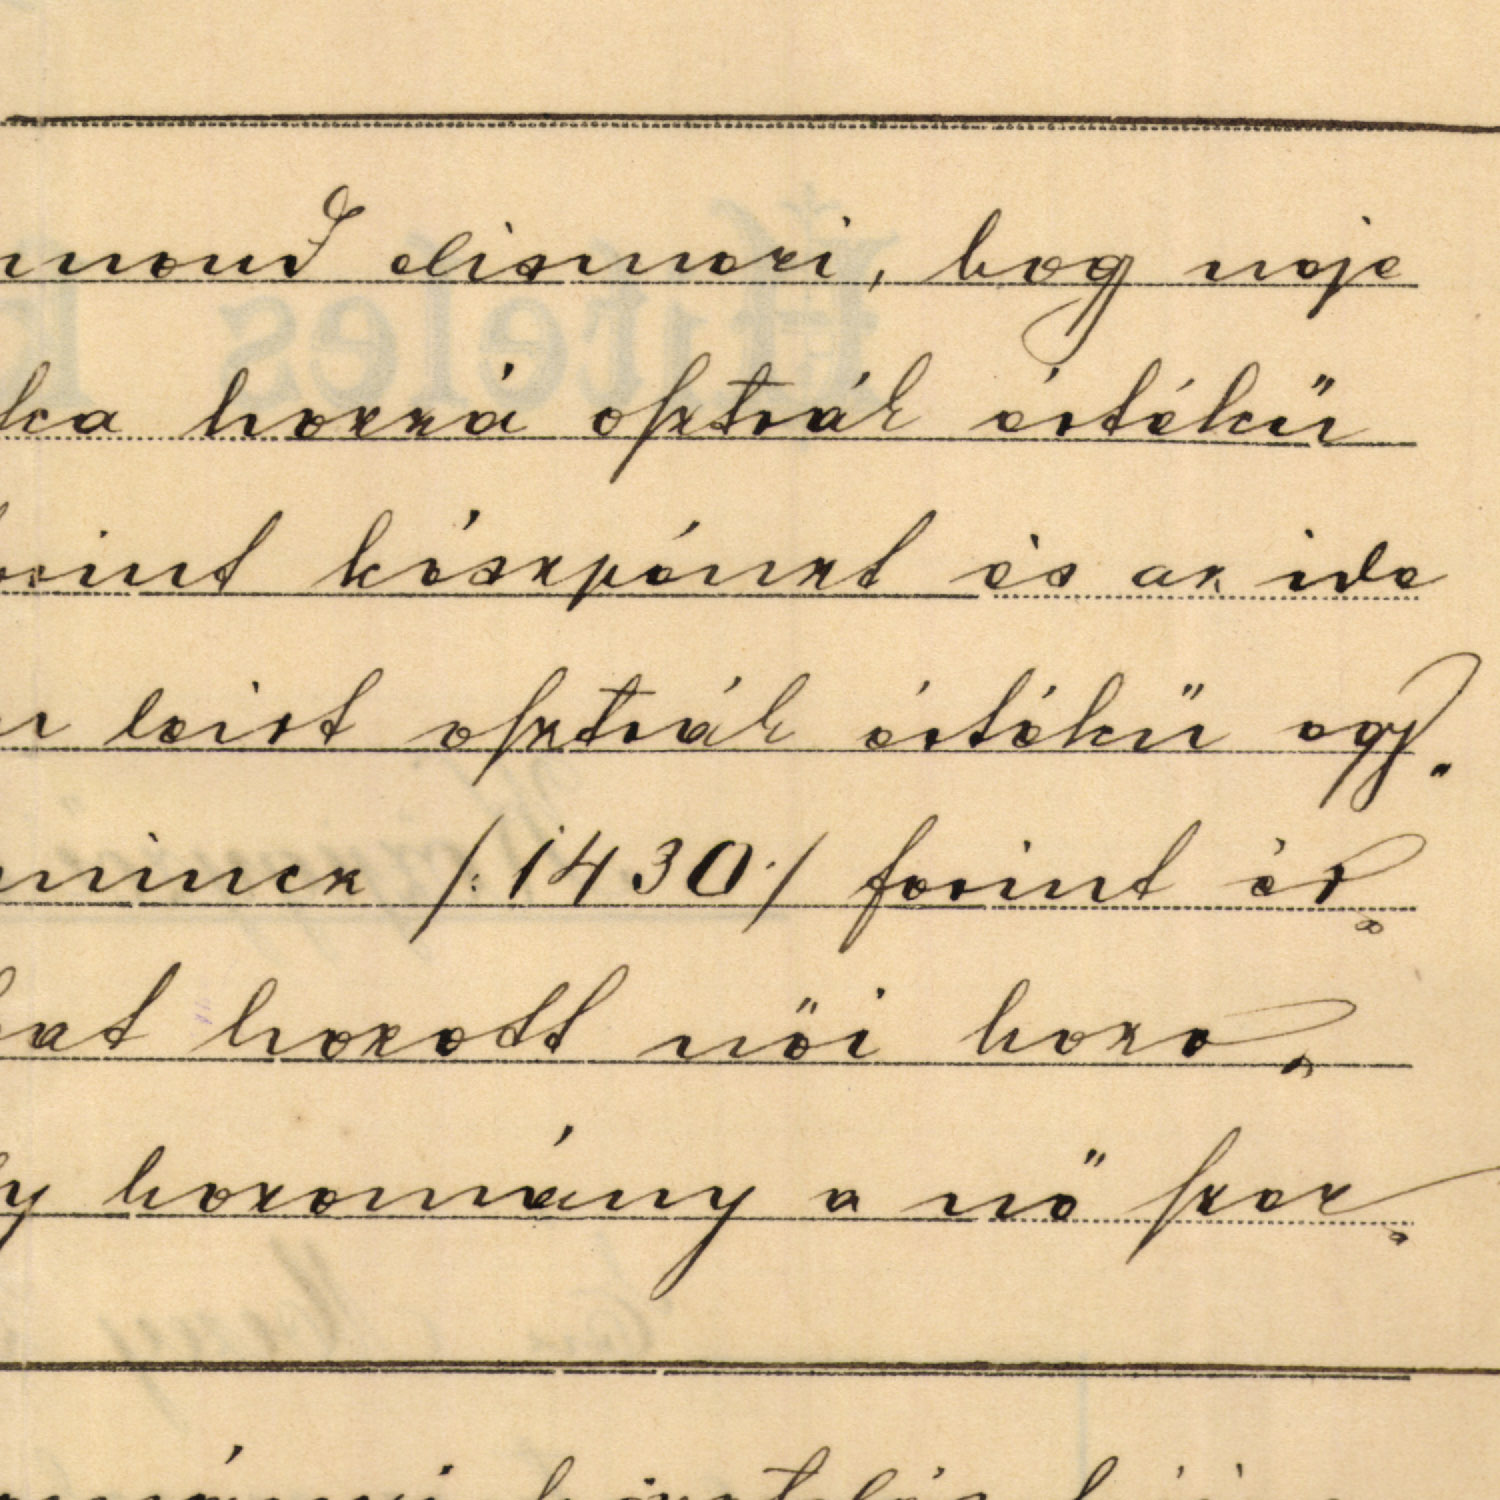 mond elismeri, hogy neje
ka hozzá osztrák értékű
forint készpénzt és az ide
leirt osztrák értékű egy„
mincz /:1430:/ forint ér„
hat hozott női hozo„
hozomány a nő szer„